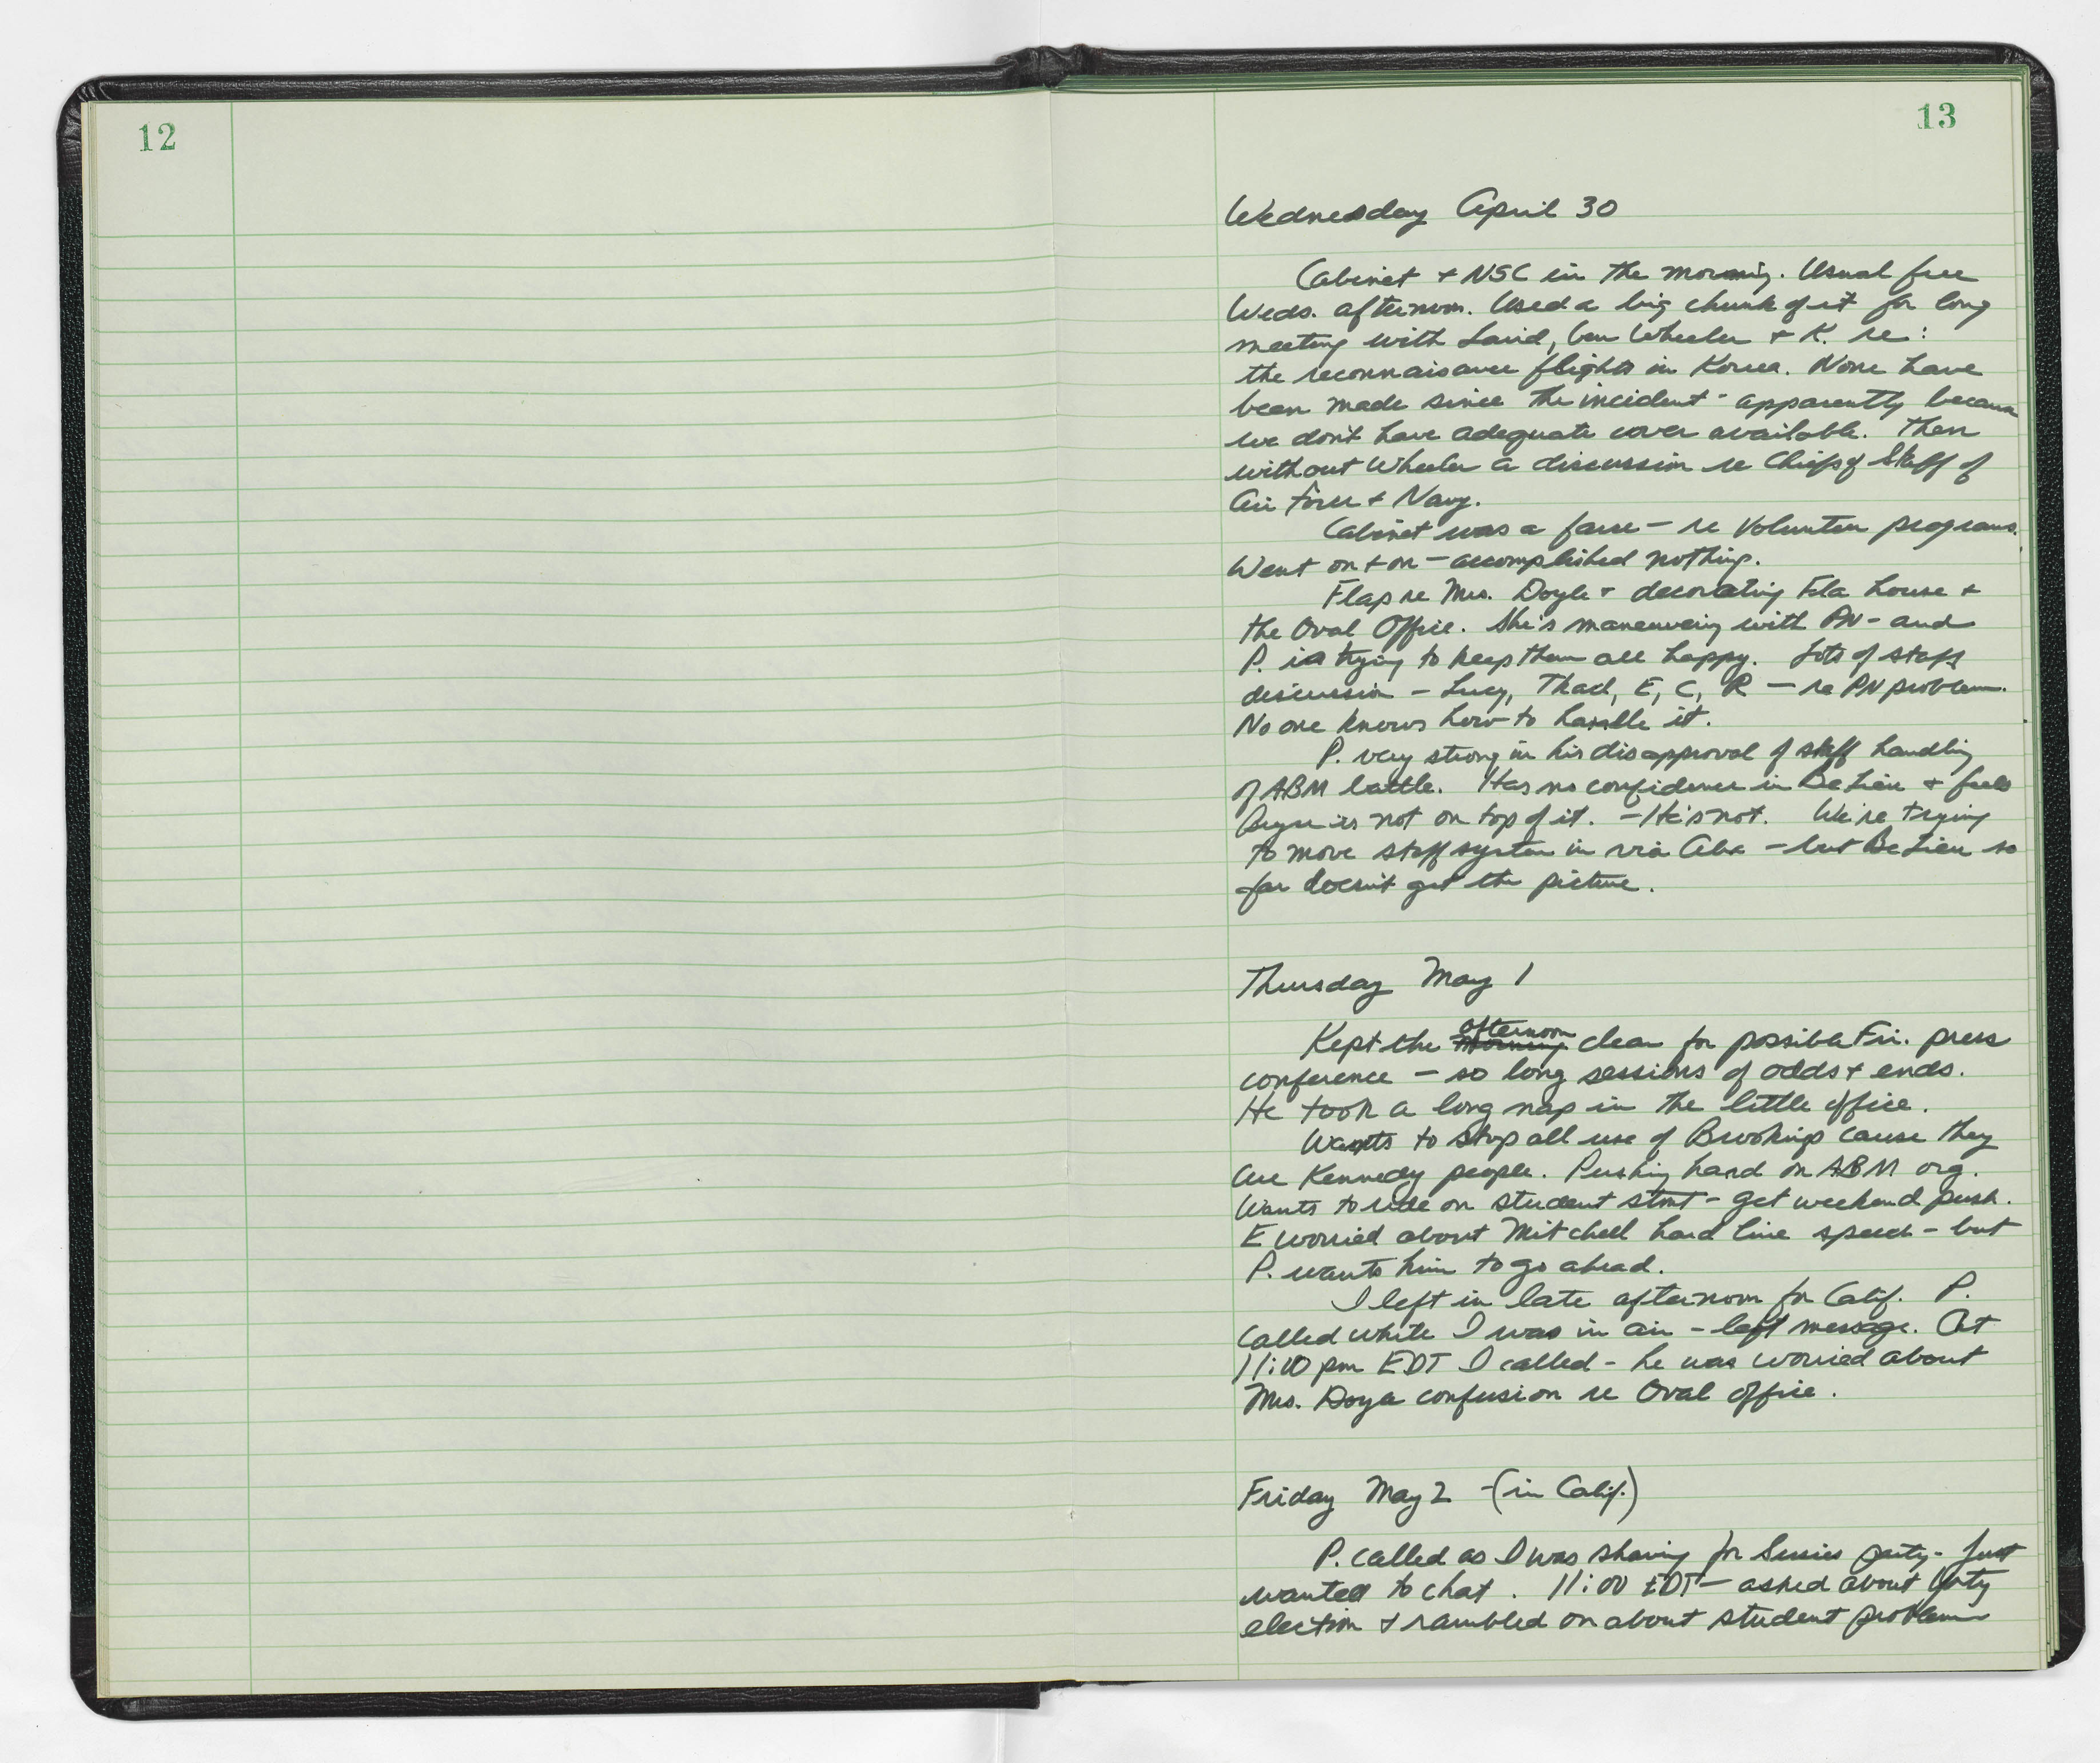 12
13
Wednesday April 30
Cabinet + NSC in the morning. Usual free
Weds. afternoon. Used a big chunk of it for long
meeting with Laird, Gen Wheeler + K. re:
the reconnaisance flights in Korea. None have
been made since the incident - apparently because
we don't have adequate cover available. Then
without Wheeler a discussion re Chiefs of Staff of
Air Force + Navy.
Cabinet was a farce - re Volunteer programs.
Went on + on - accomplished nothing.
Flap re Mrs. Doyle + decorating Fla house +
the Oval Office. She's maneuvering with PN - and
P. is trying to keep them all happy. Lots of staff
discussion - Lucy, Thad, E, C, R - re PN problem.
No one knows how to handle it.
P. very strong in his disapproval of staff handling
of ABM battle. Has no confidence in BeLieu + feels
Bryce is not on top of it. - He's not. We're trying
to move staff system in via Alex - but BeLieu so
far doesn't get the picture.
Thursday May 1
Kept the morning afternoon clear for possible Fri. press
conference - so long sessions of odds + ends.
He took a long nap in the little office.
Wants to stop all use of Brookings cause they
are Kennedy people. Pushing hard on ABM org.
Wants to ride on student stmt - get weekend push.
E worried about Mitchell hard line speech - but
P. wants him to go ahead.
I left in late afternoon for Calif. P.
called while I was in air - left message. At
11:00 pm EDT I called - he was worried about
Mrs. Doyle confusion re Oval office.
Friday May 2 - (in Calif.)
P. called as I was shaving for Sussies party - Just
wanted to chat. 11:00 EDT - asked about Yorty
election + rambled on about student problems